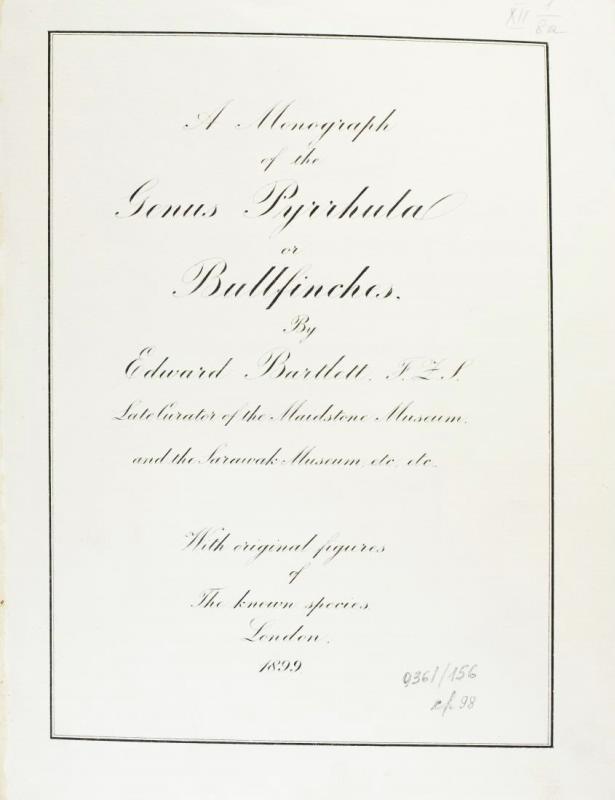 XII 1
8a
A Monograph
of the
Genus Pyrrhula
or
Bullfinches.
By
Edward Bartlett, F.Z.S.
Late Curator of the Maidstone Museum,
and the Sarawak Museum, etc., etc.
With original figures
of
The known species.
London.
1899.
9361/156
98